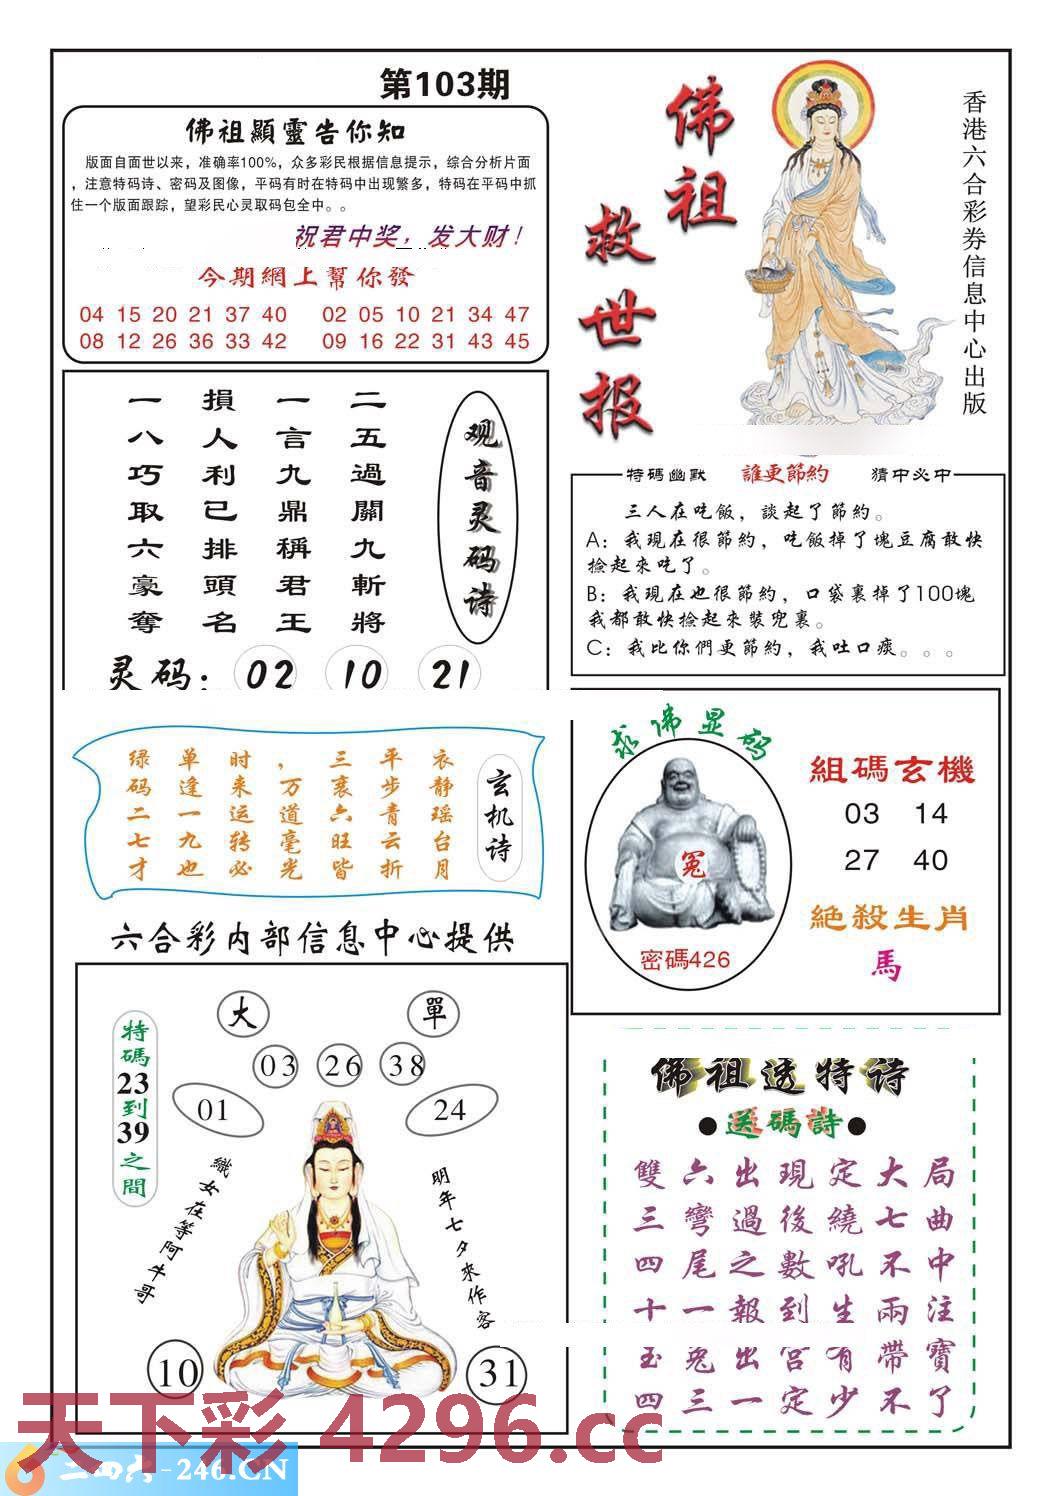 第103期
佛祖顯靈告你知
版面自面世以来，准确率100%，众多彩民根据信息提示，综合分析片面
，注意特码诗、密码及图像，平码有时在特码中出现繁多，特码在平码中抓
住一个版面跟踪，望彩民心灵取码包全中。。
祝君中奖，发大财！
今期網上幫你發
04 15 20 21 37 40 02 05 10 21 34 47
08 12 26 36 33 42 09 16 22 31 43 45
佛祖
救世报
香港六合彩券信息中心出版
观音灵码诗
二五過關九斬將
一言九鼎稱君王
損人利已排頭名
一八巧取六豪奪
灵码：02 10 21
特碼幽默 誰更節約 猜中必中
三人在吃飯，談起了節約。
A：我現在很節約，吃飯掉了塊豆腐敢快
撿起來吃了。
B：我現在也很節約，口袋裏掉了100塊
我都敢快撿起來裝兜裏。
C：我比你們更節約，我吐口痰。。。
玄机诗
衣静瑶台月
平步青云折
三衰六旺皆
，万道毫光
时来运转必
单逢一九也
绿码二七才
求佛显码
冤
密碼426
組碼玄機
03 14
27 40
絕殺生肖
馬
六合彩内部信息中心提供
特碼23到39之間
大 單
03 26 38
01 24
織女在等阿牛哥
明年七夕來作客
10 31
佛祖透特诗
●送碼詩●
雙六出現定大局
三彎過後繞七曲
四尾之數吼不中
十一報到生兩注
玉兔出宮有帶寶
四三一定少不了
天下彩 4296.cc
二四六-246.CN